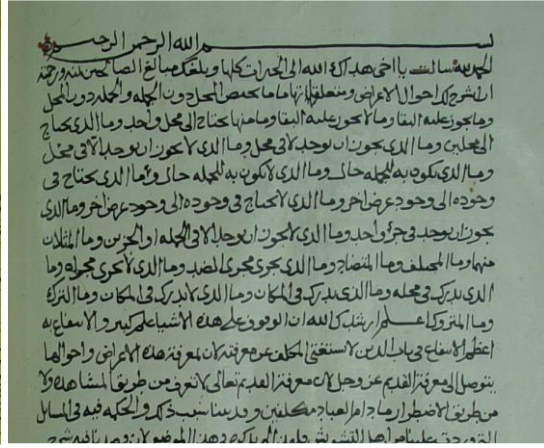 بسم الله الرحمن الرحيم
الحمد لله سالت يا اخي هداك الله الى الخيرات كلها وبلغك مبالغ الصالحين بمنه ورحمته
ان اشرح لك احوال الاعراض ومتعلقاتها وما يختص المحل دون الجمله والجمله دون المحل
وما يجوز عليه البقا وما لا يجوز عليه البقا وما منها يحتاج الى محل واحد وما الذي يحتاج
الى محلين وما الذي يجوز ان يوجد لا في محل وما الذي لا يجوز ان يوجد الا في محل
وما الذي يكون به للجمله حال وما الذي لا يكون به للجمله حال وما الذي يحتاج في
وجوده الى وجود عرض اخر وما الذي لا يحتاج في وجوده الى وجود عرض اخر وما الذي
يجوز ان يوجد في جزؤ واحد وما الذي لا يجوز ان يوجد الا في الجمله او الجزين وما المثلان
منها وما المختلف وما المتضاد وما الذي يجري مجرى الضد وما الذي لا يجري مجراه وما
الذي يدرك في محله وما الذي يدرك في المكان وما الذي لا يدرك في المكان وما الترك
وما المتروك اعلم ارشدك الله ان الوقوف على هذه الاشيا علم كبير والانتفاع به
اعظم الانتفاع في باب الدين لا يستغني المكلف عن معرفته لان بمعرفة هذه الاعراض واحوالها
يتوصل الى معرفة القديم عز وجل لان معرفة القديم تعالى لا تعرف من طريق المشاهده ولا
من طريق الاضطرار ما دام العباد مكلفين وقد بينا سبب ذلك والحكمه فيه في المسايل